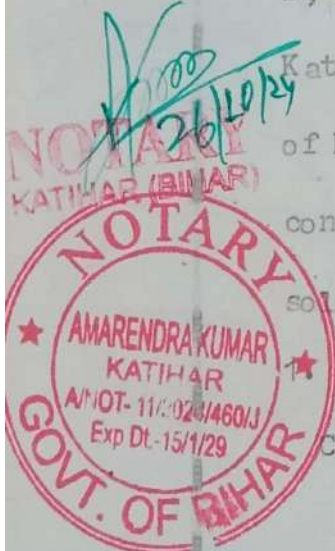 Kat
26/10/24
NOTARY
of
KATIHAR (BIHAR)
con
NOTARY
sol
AMARENDRA KUMAR
KATIHAR
A/NOT- 11/2023/460/J
Exp Dt.-15/1/29
GOVT. OF BIHAR